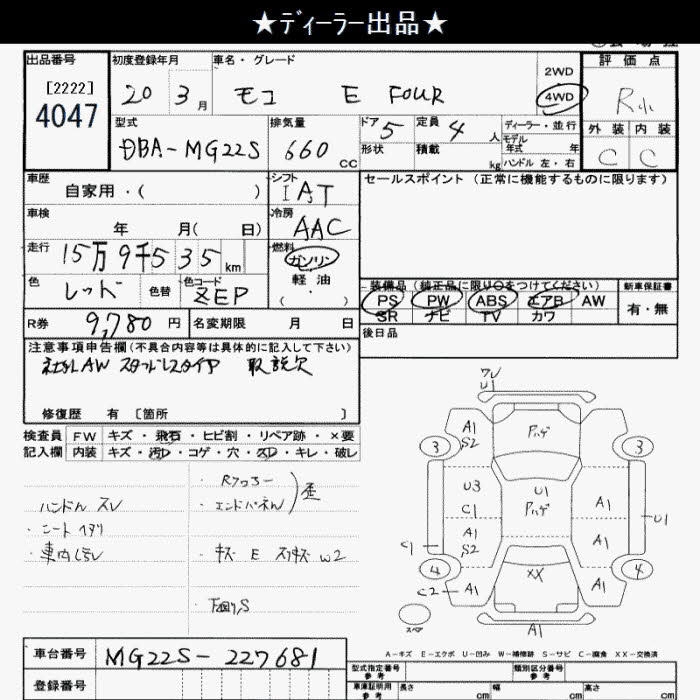 ★ディーラー出品★
出品番号
[2222]
4047
初度登録年月
20 3 月
車名・グレード
モコ E FOUR
2WD
4WD
評価点
R
外装 内装
C C
型式
DBA-MG22S
排気量
660 CC
ドア 5
形状
定員 4 人
積載 kg
ディーラー・並行
モデル
年式 年
ハンドル 左・右
車歴
自家用・( )
シフト
IAT
車検
年 月( 日)
冷房
AAC
走行
15万9千535 km
燃料
ガソリン
軽油
( )
色
レッド
色替
色コード
ZEP
セールスポイント(正常に機能するものに限ります)
装備品(純正品に限り○をつけてください)
PS PW ABS エアB AW
SR ナビ TV カワ
新車保証書
有・無
R券 9,780 円
名変期限 月 日
後日品
注意事項申告欄(不具合内容等は具体的に記入して下さい)
社外AW スタッドレスタイヤ 取説欠
修復歴 有 〔箇所 〕
検査員 FW キズ・飛石・ヒビ割・リペア跡・×要
記入欄 内装 キズ・汚レ・コゲ・穴・スレ・キレ・破レ
ハンドルスレ
・シートヘタリ
・車内汚レ
・Rフロアー
・エンドパネル 歪
・キズ E スリキズ W2
下回りS
ワレ
U1
A1
S2
Pハゲ
3 3
U3
C1
U1
Pハゲ
A1
A1
S2
A1
C1
U1
4 4
C2
A1
XX
A1
スペア
A1
A-キズ E-エクボ U-凹み W-補修跡 S-サビ C-腐食 XX-交換済
車台番号 MG22S-227681
登録番号
型式指定番号
参考
類別区分番号
参考
車庫証明用
参考
長さ cm
幅 cm
高さ cm